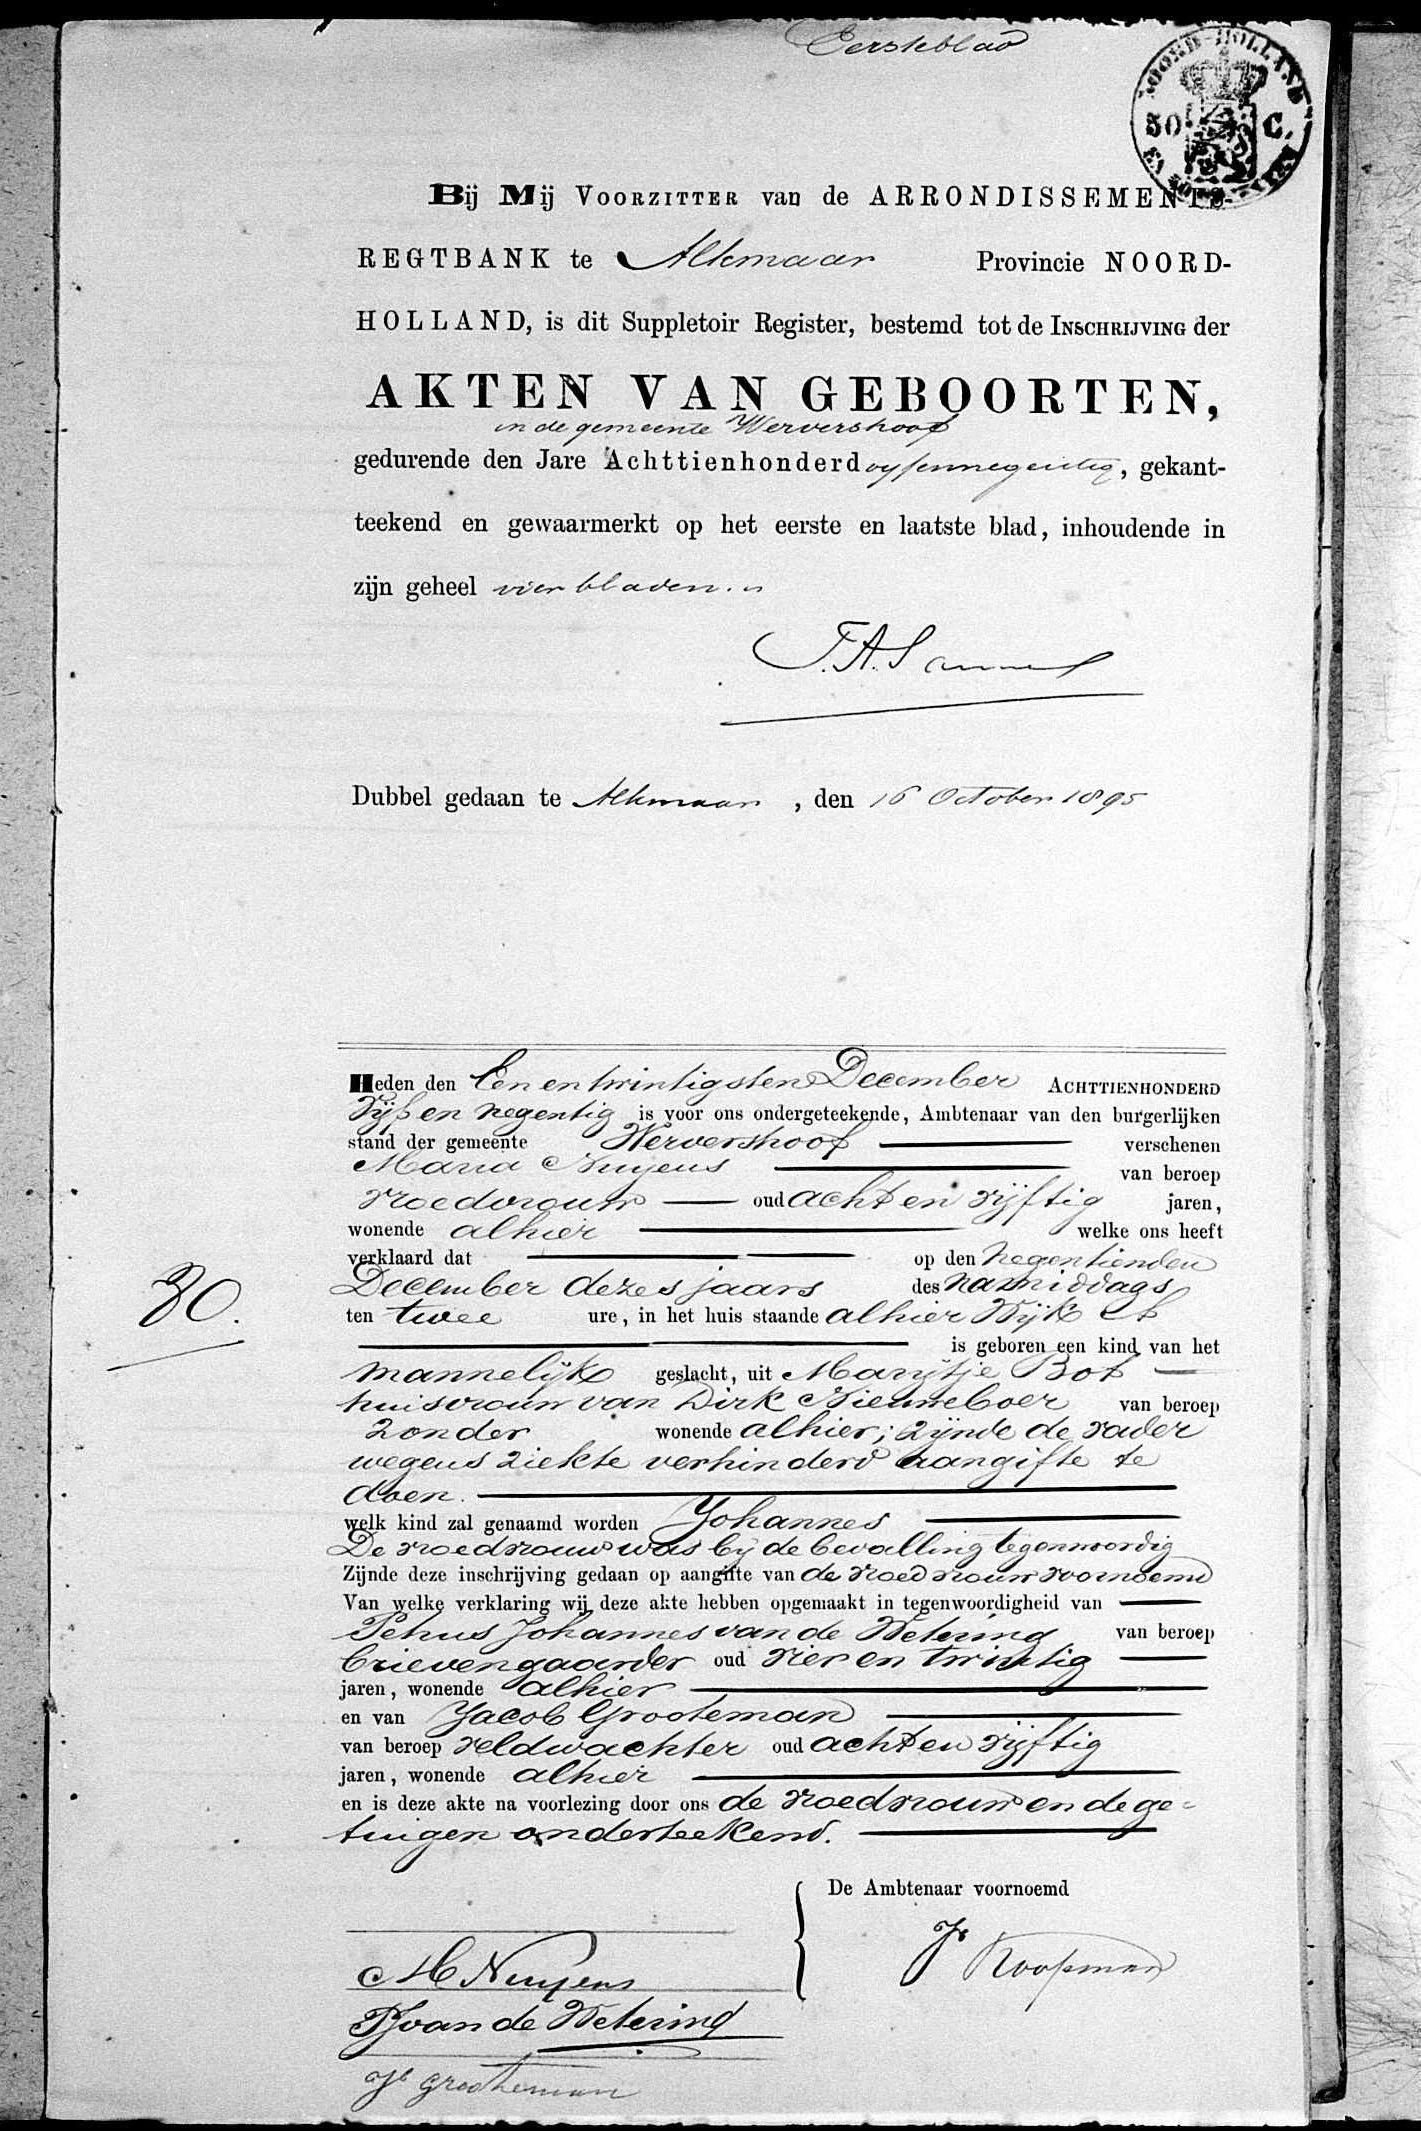 Eerste blad
NOORD-HOLLAND
50 C.
Bij Mij VOORZITTER van de ARRONDISSEMENTS-
REGTBANK te Alkmaar Provincie NOORD-
HOLLAND, is dit Suppletoir Register, bestemd tot de INSCHRIJVING der
AKTEN VAN GEBOORTEN,
in de gemeente Wervershoof
gedurende den Jare Achttienhonderd vijfennegentig, gekant-
teekend en gewaarmerkt op het eerste en laatste blad, inhoudende in
zijn geheel vier bladen.
Dubbel gedaan te Alkmaar, den 16 October 1895
Heden den Een en twintigsten December ACHTTIENHONDERD
Vijf en negentig is voor ons ondergeteekende, Ambtenaar van den burgerlijken
stand der gemeente Wervershoof verschenen
Maria Nuyens van beroep
vroedvrouw oud acht en vijftig jaren,
wonende alhier welke ons heeft
verklaard dat op den negentienden
December dezes jaars des namiddags
ten twee ure, in het huis staande alhier Wijk
is geboren een kind van het
30.
mannelijk geslacht, uit Marijtje Bot
huisvrouw van Dirk Nieuweboer van beroep
zonder wonende alhier; zijnde de vader
wegens ziekte verhinderd aangifte te
doen.
welk kind zal genaamd worden Johannes
De vroedvrouw was bij de bevalling tegenwoordig
Zijnde deze inschrijving gedaan op aangifte van de vroedvrouw voornoemd
Van welke verklaring wij deze akte hebben opgemaakt in tegenwoordigheid van
Petrus Johannes van de Wetering van beroep
brievengaarder oud vier en twintig
jaren, wonende alhier
en van Jacob Grooteman
van beroep veldwachter oud acht en vijftig
jaren, wonende alhier
en is deze akte na voorlezing door ons de vroedvrouw en de ge-
tuigen onderteekend.
De Ambtenaar voornoemd
M Nuyens
Koopman
PJ van de Wetering
Jb Grooteman